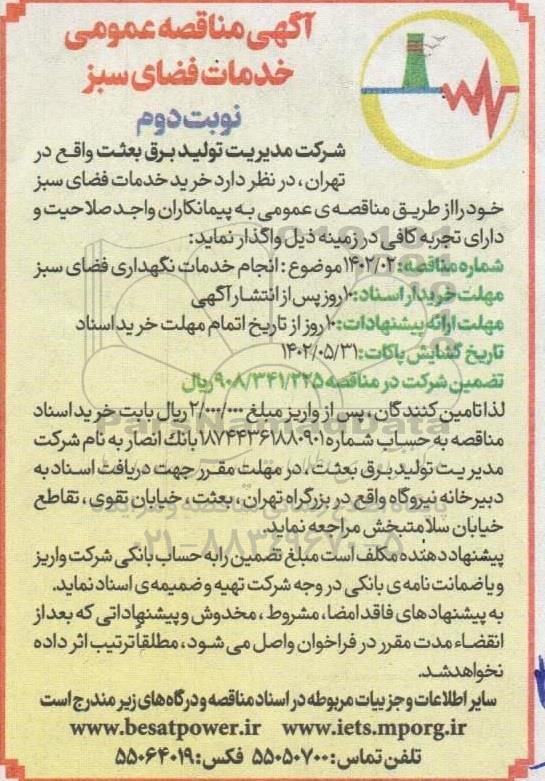 آگهی مناقصه عمومی
خدمات فضای سبز
نوبت دوم
شرکت مدیریت تولید برق بعثت واقع در
تهران، در نظر دارد خرید خدمات فضای سبز
خود را از طریق مناقصه ی عمومی به پیمانکاران واجد صلاحیت و
دارای تجربه کافی در زمینه ذیل واگذار نماید:
شماره مناقصه: ۱۴۰۲/۰۲ موضوع: انجام خدمات نگهداری فضای سبز
مهلت خریدار اسناد: ۱۰ روز پس از انتشار آگهی
مهلت ارائه پیشنهادات: ۱۰ روز از تاریخ اتمام مهلت خرید اسناد
تاریخ گشایش پاکات: ۱۴۰۲/۰۵/۳۱
تضمین شرکت در مناقصه ۹۰۸/۳۴۱/۲۲۵ ریال
لذا تامین کنندگان، پس از واریز مبلغ ۲/۰۰۰/۰۰۰ ریال بابت خرید اسناد
مناقصه به حساب شماره ۱۸۷۴۴۳۶۱۸۸۰۹۰۱ بانک انصار به نام شرکت
مدیریت تولید برق بعثت، در مهلت مقرر جهت دریافت اسناد به
دبیرخانه نیروگاه واقع در بزرگراه تهران، بعثت، خیابان تقوی، تقاطع
خیابان سلامتبخش مراجعه نماید.
پیشنهاد دهنده مکلف است مبلغ تضمین را به حساب بانکی شرکت واریز
و یا ضمانت نامه ی بانکی در وجه شرکت تهیه و ضمیمه ی اسناد نماید.
به پیشنهادهای فاقد امضا، مشروط، مخدوش و پیشنهاداتی که بعد از
انقضاء مدت مقرر در فراخوان واصل می شود، مطلقاً ترتیب اثر داده
نخواهد شد.
سایر اطلاعات و جزییات مربوطه در اسناد مناقصه و درگاه های زیر مندرج است
www.besatpower.ir www.iets.mporg.ir
تلفن تماس: ۵۵۰۵۰۷۰۰ فکس: ۵۵۰۶۴۰۱۹
ParsNamadData
۰۲۱-۸۸۳۴۹۶۷۰-۵